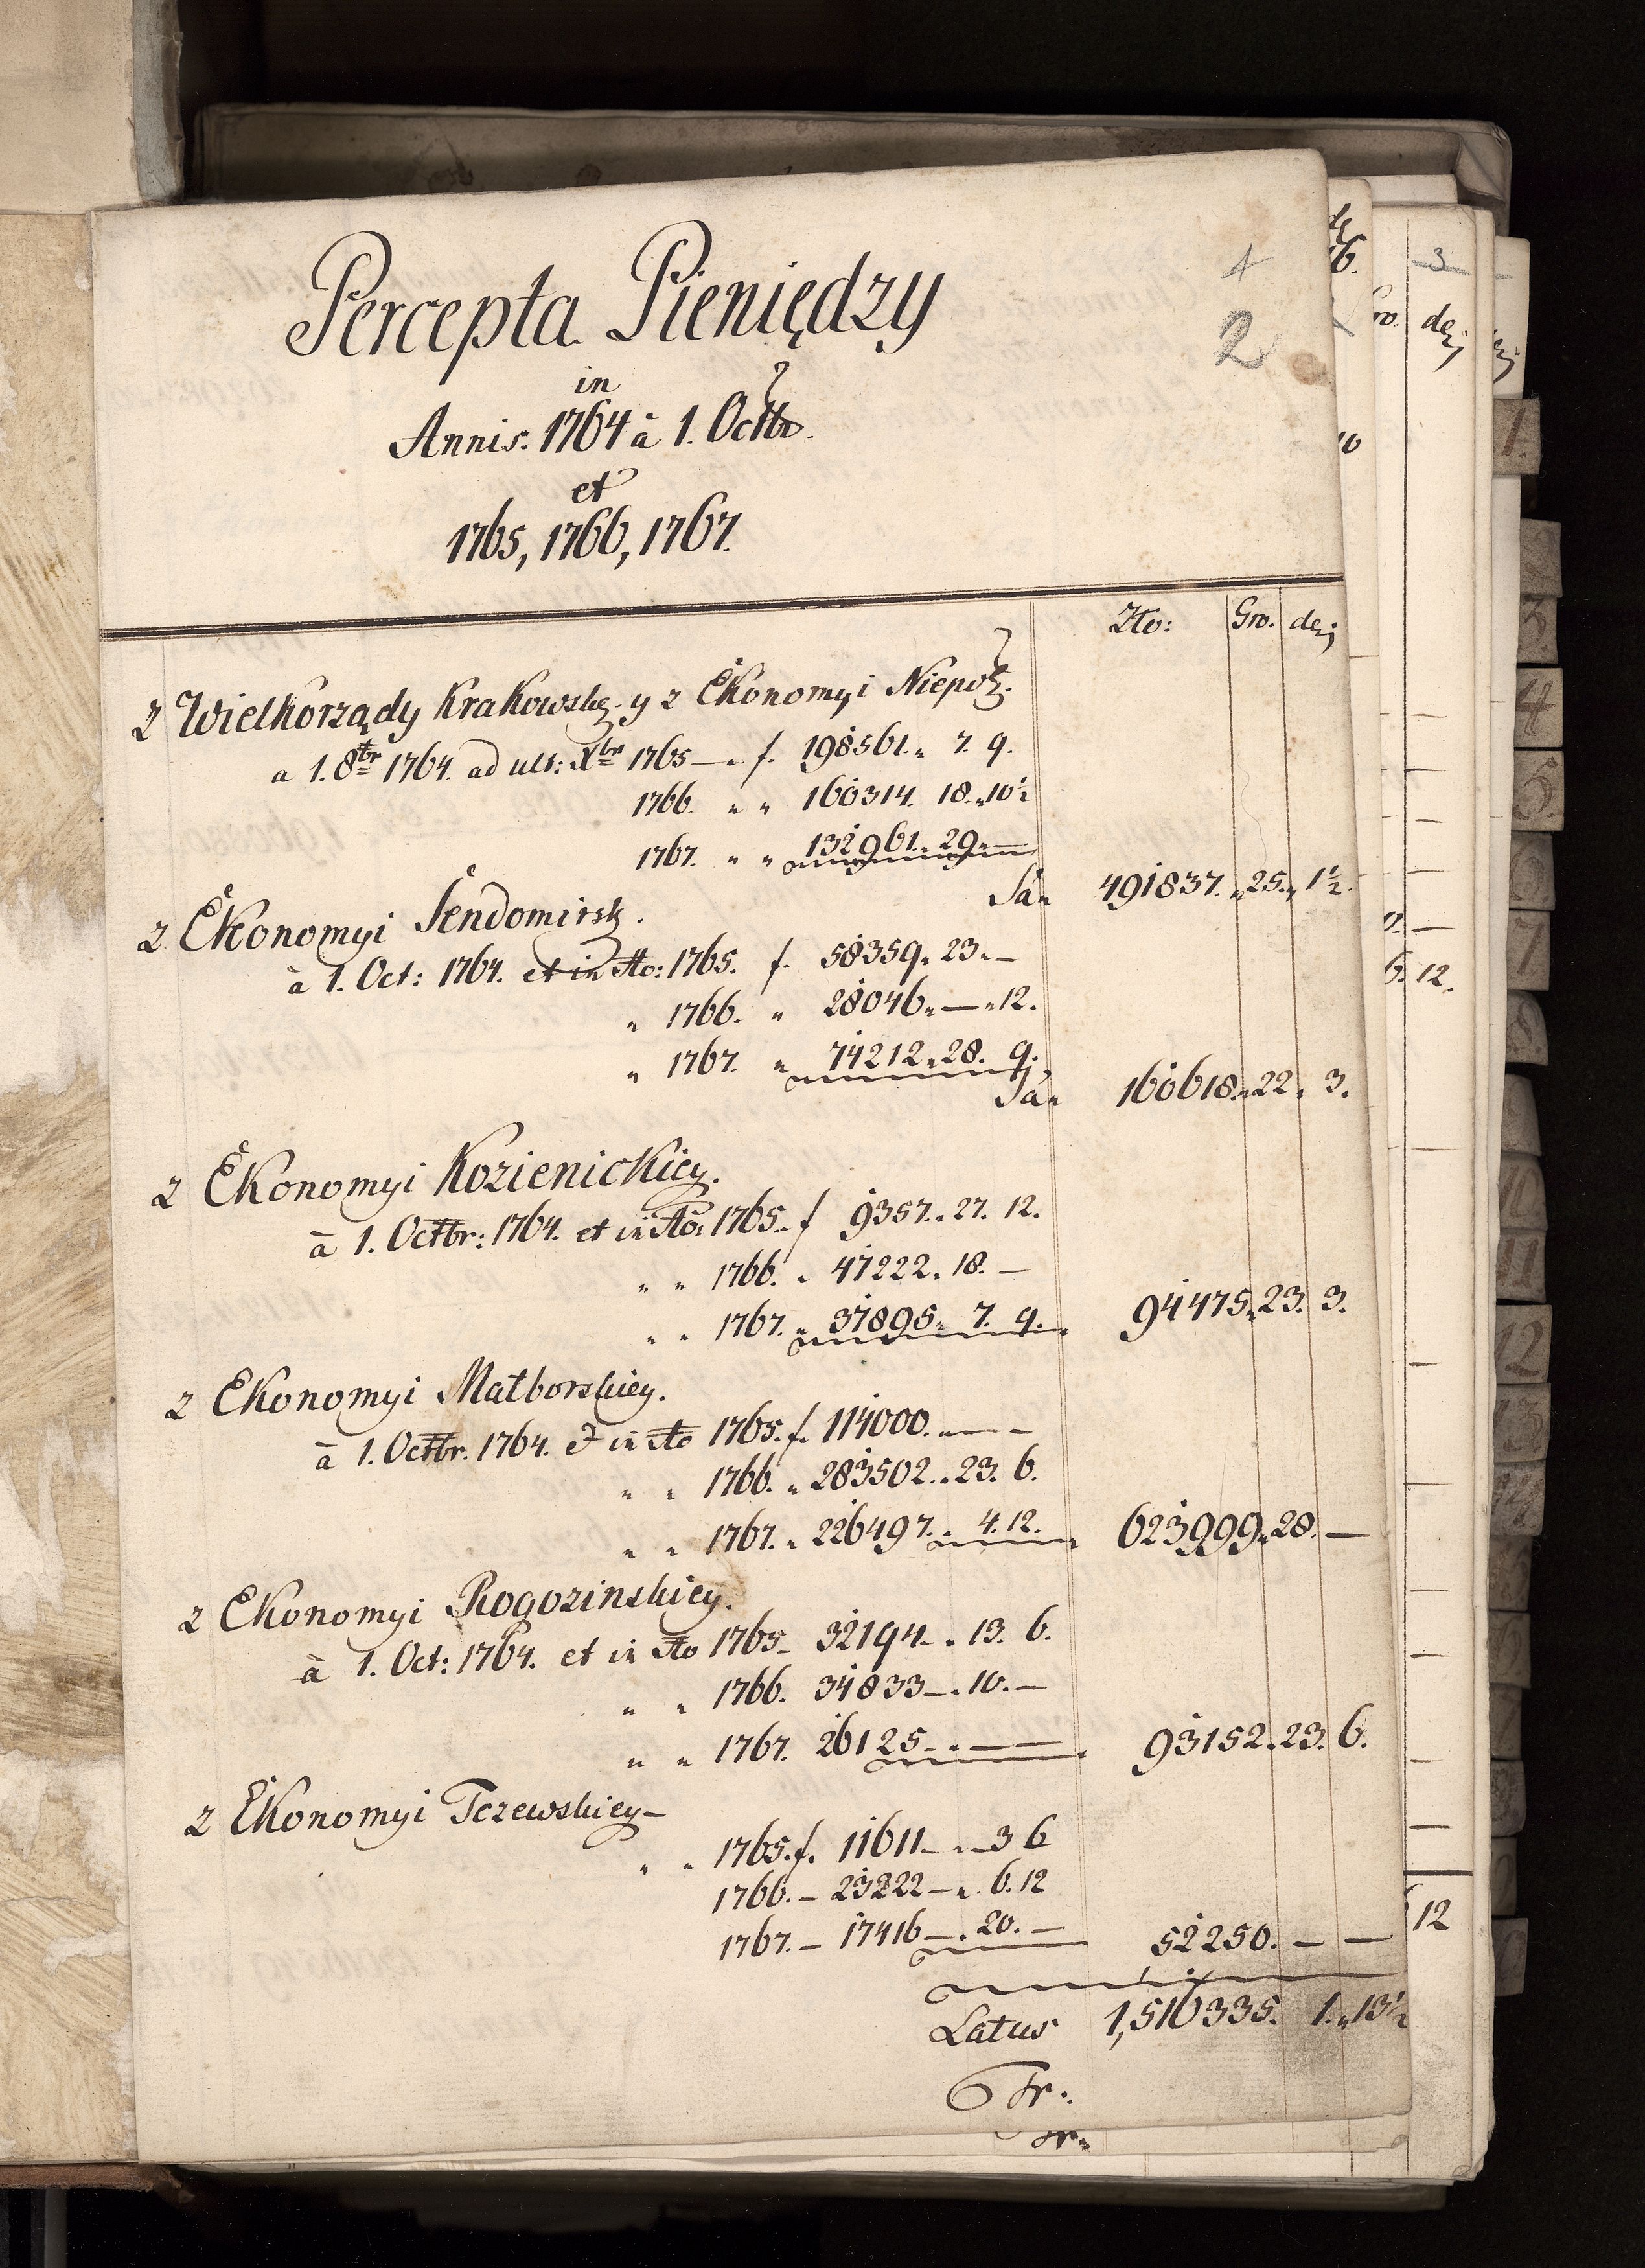 Percepta Pieniędzy
4
2
in
Annis. 1764 à 1. Octbr.
et
1765, 1766, 1767.
Zło: Gro. den
z Wielkorządy Krakowskiey y z Ekonomyi Niepoł.
a 1. 8br 1764. ad ult: Xbr 1765 — f. 198561. 7. 9.
1766. " " 160314. 18. 10½
1767. " " 132961. 29. —
Sa 491837. 25. 1½.
z Ekonomyi Sendomirsk.
à 1. Oct: 1764. et in Ao: 1765. f. 58359. 23. —
" 1766. " 28046. — 12.
" 1767. " 74212. 28. 9.
Sa 160618. 22. 3.
z Ekonomyi Kozienickiey.
à 1. Octbr: 1764. et in Ao: 1765. f 9357. 27. 12.
" " 1766. " 47222. 18. —
" " 1767. " 37895. 7. 9. 94475. 23. 3.
z Ekonomyi Malborskiey.
à 1. Octbr. 1764. et in Ao 1765. f. 114000. — —
" " 1766. " 283502. 23. 6.
" " 1767. " 226497. 4. 12. 623999. 28. —
z Ekonomyi Rogozinskiey.
à 1. Oct: 1764. et in Ao 1765 — 32194 — 13. 6.
" " 1766. 34833 — 10. —
" " 1767. 26125 — — — 93152. 23. 6.
z Ekonomyi Tczewskiey —
" " 1765. f. 11611 — 3 6
1766. — 23222 — 6. 12
1767. — 17416 — 20. — 52250. — —
Latus 1,516335. 1. 13½
Tr: